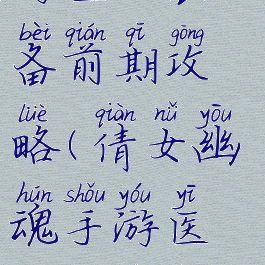 bèi qián qī gōng
备前期攻
lüè qiàn nǚ yōu
略(倩女幽
hún shǒu yóu yī
魂手游医